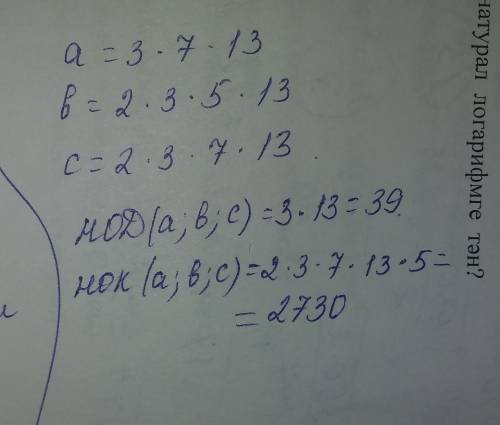 a = 3 · 7 · 13
в = 2 · 3 · 5 · 13
с = 2 · 3 · 7 · 13.
НОД (а; в; с) = 3 · 13 = 39.
НОК (а; в; с) = 2 · 3 · 7 · 13 · 5 =
= 2730
натурал логарифмге тән?